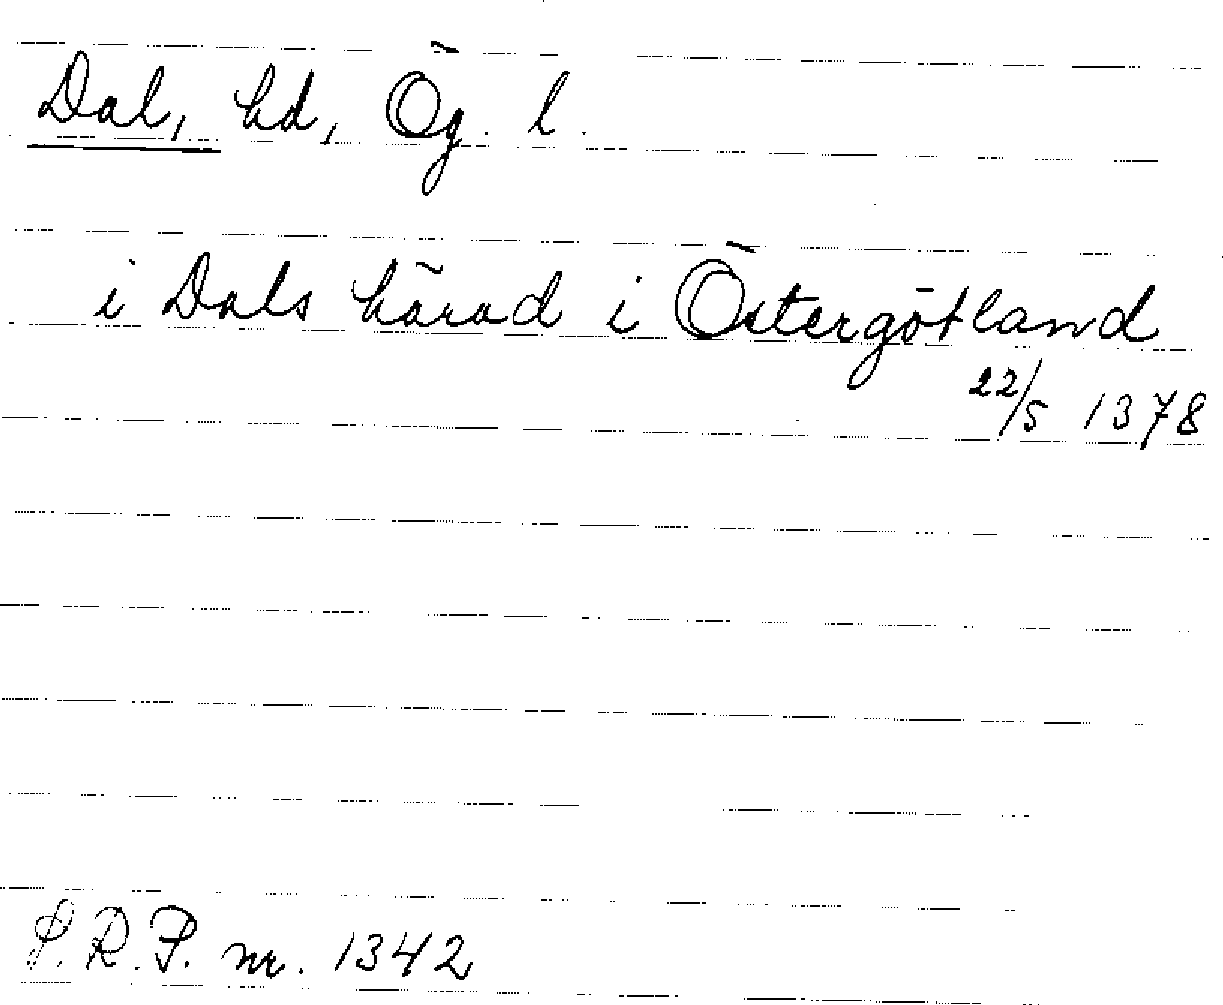 Dal, hd, Ög. l.
i Dals härad i Östergötland
22/5 1378
S.R.P. nr. 1342